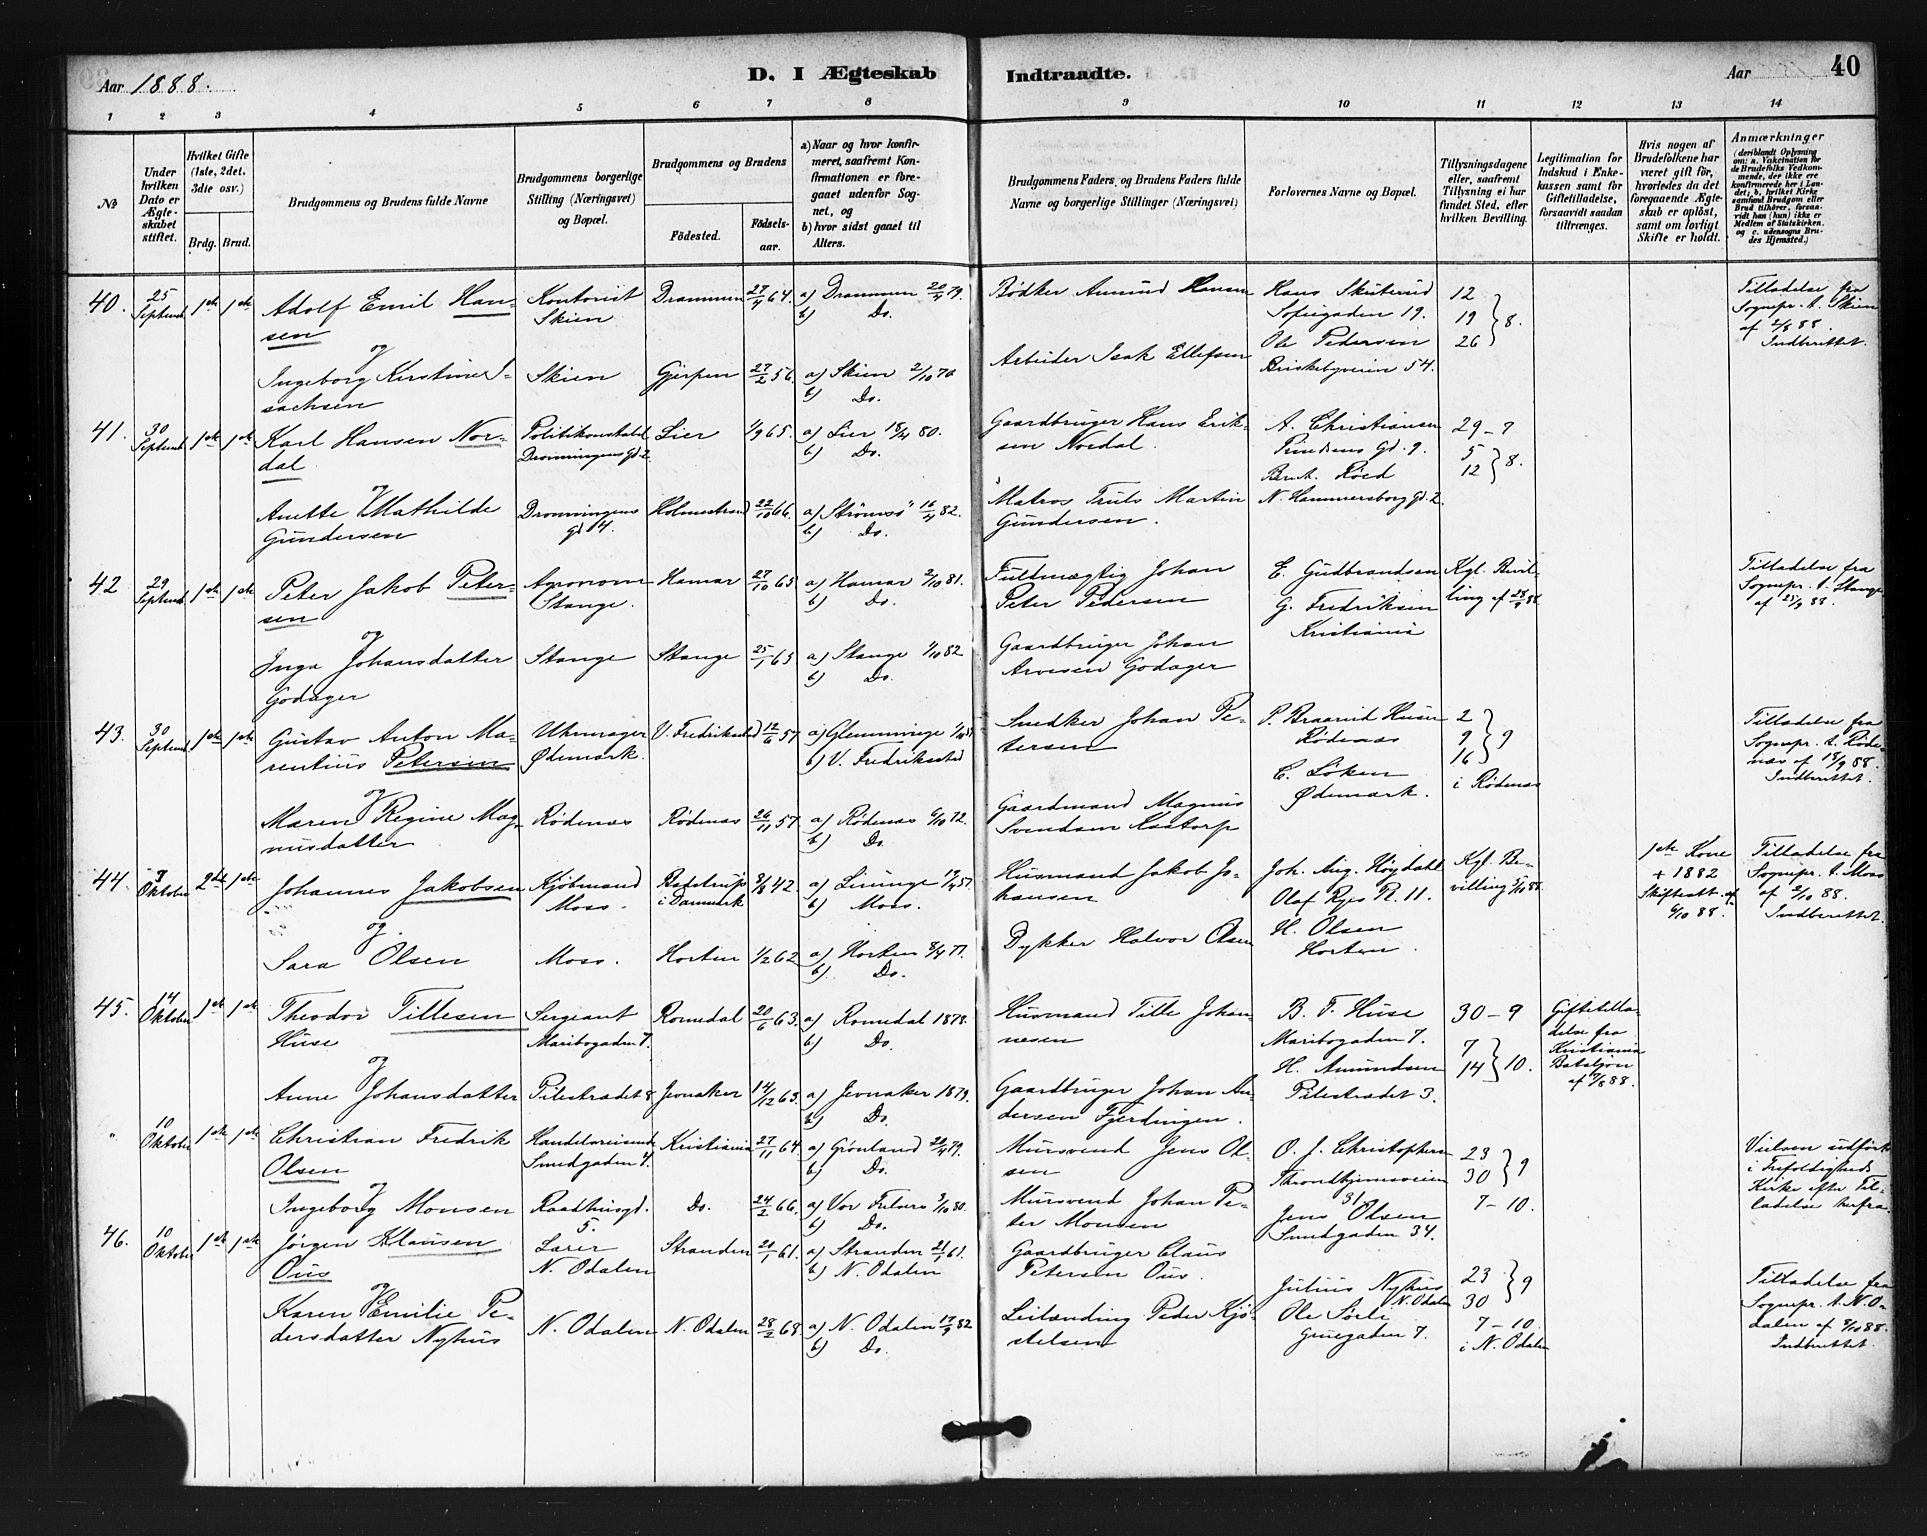 Aar 1888.
D. I Ægteskab Indtraadte.
Aar
40
1 2 3 4 5 6 7 8 9 10 11 12 13 14
№
Under hvilken Dato er Ægteskabet stiftet.
Hvilket Gifte (1ste, 2det, 3die osv.)
Brdg. Brud.
Brudgommens og Brudens fulde Navne
Brudgommens borgerlige Stilling (Næringsvei) og Bopæl.
Brudgommens og Brudens
Fødested.
Fødselsaar.
a) Naar og hvor konfirmeret, saafremt Konfirmationen er foregaaet udenfor Sognet, og
b) hvor sidst gaaet til Alters.
Brudgommens Faders, og Brudens Faders fulde Navne og borgerlige Stillinger (Næringsvei)
Forlovernes Navne og Bopæl.
Tillysningsdagene eller, saafremt Tillysning ei har fundet Sted, efter hvilken Bevilling.
Legitimation for Indskud i Enkekassen samt for Giftetilladelse, forsaavidt saadan tiltrænges.
Hvis nogen af Brudefolkene har været gift før, hvorledes da det foregaaende Ægteskab er opløst, samt om lovligt Skifte er holdt.
Anmærkninger
(deriblandt Oplysning om: a. Vakcination for de Brudefolks Vedkommende, der ikke ere konfirmerede her i Landet; b. hvilket Kirkesamfund Brudgom eller Brud tilhører, forsaavidt han (hun) ikke er Medlem af Statskirken, og c. udensogns Brudes Hjemsted.)
40. 25 Septemb 1ste 1ste Adolf Emil Hansen Kontorist Skien Drammen 27/4 64. a) Drammen 20/4 79. b) Do. Bødker Amund Hansen Hans Skuterud Sofiegaden 19. 12 19 26 } 8. Tilladelse fra Sognepr. t. Skien af 2/8 88. Indberettet.
og
Ingeborg Kirstine Isachsen Skien Gjerpen 27/2 56. a) Skien 2/10 70 b) Do. Arbeider Isak Ellefsen Ole Pedersen Briskebyveien 54.
41. 30 Septemb 1ste 1ste Karl Hansen Nordal Politikonstabel Dronningens Gd. 2 Lier 1/9 65. a) Lier 18/4 80. b) Do. Gaardbruger Hans Eriksen Nordal. A. Christiansen Prindsens Gd. 9. 29-7 5 12 } 8.
og
Anette Mathilde Gundersen Dronningens gd 14. Holmestrand 22/10 66. a) Strømsø 16/4 82. b) Do. Matros Truls Martin Gundersen. Bernt. Röed N. Hammersborg Gd. 2
42 29 Septemb 1ste 1ste Peter Jakob Petersen Agronom Stange. Hamar 27/10 65 a) Hamar 2/10 81. b) Do. Fuldmægtig Johan Peter Pedersen E. Gudbrandsen G. Fredriksen Kristiania Kgl. Bevilling af 28/9 88 Tilladelse fra Sognepr. t. Stange af 25/9 88.
og
Inga Johansdatter Godager Stange Stange 25/1 65 a) Stange 1/10 82 b) Do. Gaardbruger Johan Arvesen Godager
43. 30 Septemb 1ste 1ste Gustav Anton Marentius Petersen Uhrmager Ødemark. V. Fredriksstad 12/6 57 a) Glemminge b) V. Fredriksstad Snedker Johan Petersen P. Braarud Husen Rødenæs 2 9 16 } 9 i Rødenæs Tilladelse fra Sognepr. t. Rødenæs af 18/9 88. Indberettet.
og
Maren Regine Magnusdatter Rødenæs Rødenæs 26/11 57. a) Rødenæs 6/10 72. b) Do. Gaardmand Magnus Svendsen Kaatorp C. Løken Ødemark.
44. Oktober 2det 1ste Johannes Jakobsen Kjøbmand Moss. i Danmark 42 a) b) Moss. Husmand Jakob Johansen Joh. Aug. Høydahl Olaf Ryes P. 11. Kgl. Bevilling 5/10 88 1ste Kone + 1882 Skifteatt. af 6/10 88. Tilladelse fra Sognepr. t. Moss af 2/10 88. Indberettet.
og
Sara Olsen Moss. Horten 1/2 62 a) Horten 8/4 77. b) Do. Dykker Halvor Olsen H. Olsen Horten.
45. 14 Oktober 1ste 1ste Theodor Tillesen Huse Sergeant Maribogaden 7. Romedal 20/6 63. a) Romedal 1878. b) Do. Husmand Tille Johannesen B. T. Huse Maribogaden 7. 30-9 7 14 } 10. Giftetilladelse fra Kristiania Bataljon af 7/8 88.
og
Anne Johansdatter Pilestrædet 8 Jevnaker 14/12 63. a) Jevnaker 1879. b) Do. Gaardbruger Johan Andersen Fjerdingen. H. Amundsen Pilestrædet 3.
" 10 Oktober 1ste 1ste Christian Fredrik Olsen Handelsreisende Smedgaden 4. Kristiania 27/11 64 a) Grønland 20/4 79. b) Do. Mursvend Jens Olsen O. J. Christophersen Throndhjemsveien 31. 23 30 } 9 7-10. Vielsen udført i Trefoldigheds Kirke efter Tilladelse herfra.
og
Ingeborg Monsen Raadhusgd. 5. Do. 24/2 66. a) Vor Frelsers 3/10 80. b) Do. Mursvend Johan Peter Monsen Jens Olsen Smedgaden 34.
46. 10 Oktober 1ste 1ste Jørgen Klausen Ous Lærer N. Odalen Stranden 20/1 61. a) Stranden 21/1 61. b) N. Odalen Gaardbruger Claus Petersen Ous. Julius Nyhus N. Odalen 23 30 } 9 7-10. i N. Odalen Tilladelse fra Sognepr. t. N. Odalen af 8/10 88. Indberettet.
og
Karen Emilie Pedersdatter Nyhus N. Odalen N. Odalen 28/2 68. a) N. Odalen 17/9 82 b) Do. Leilænding Peder Kjøstelsen Ole Sørli Gruegaden 7.